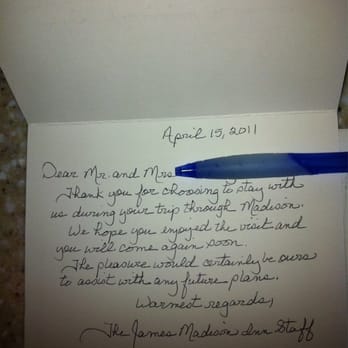 April 15, 2011
Dear Mr. and Mrs.
Thank you for choosing to stay with
us during your trip through Madison.
We hope you enjoyed the visit and
you will come again soon.
The pleasure would certainly be ours
to assist with any future plans.
Warmest regards,
The James Madison Inn Staff